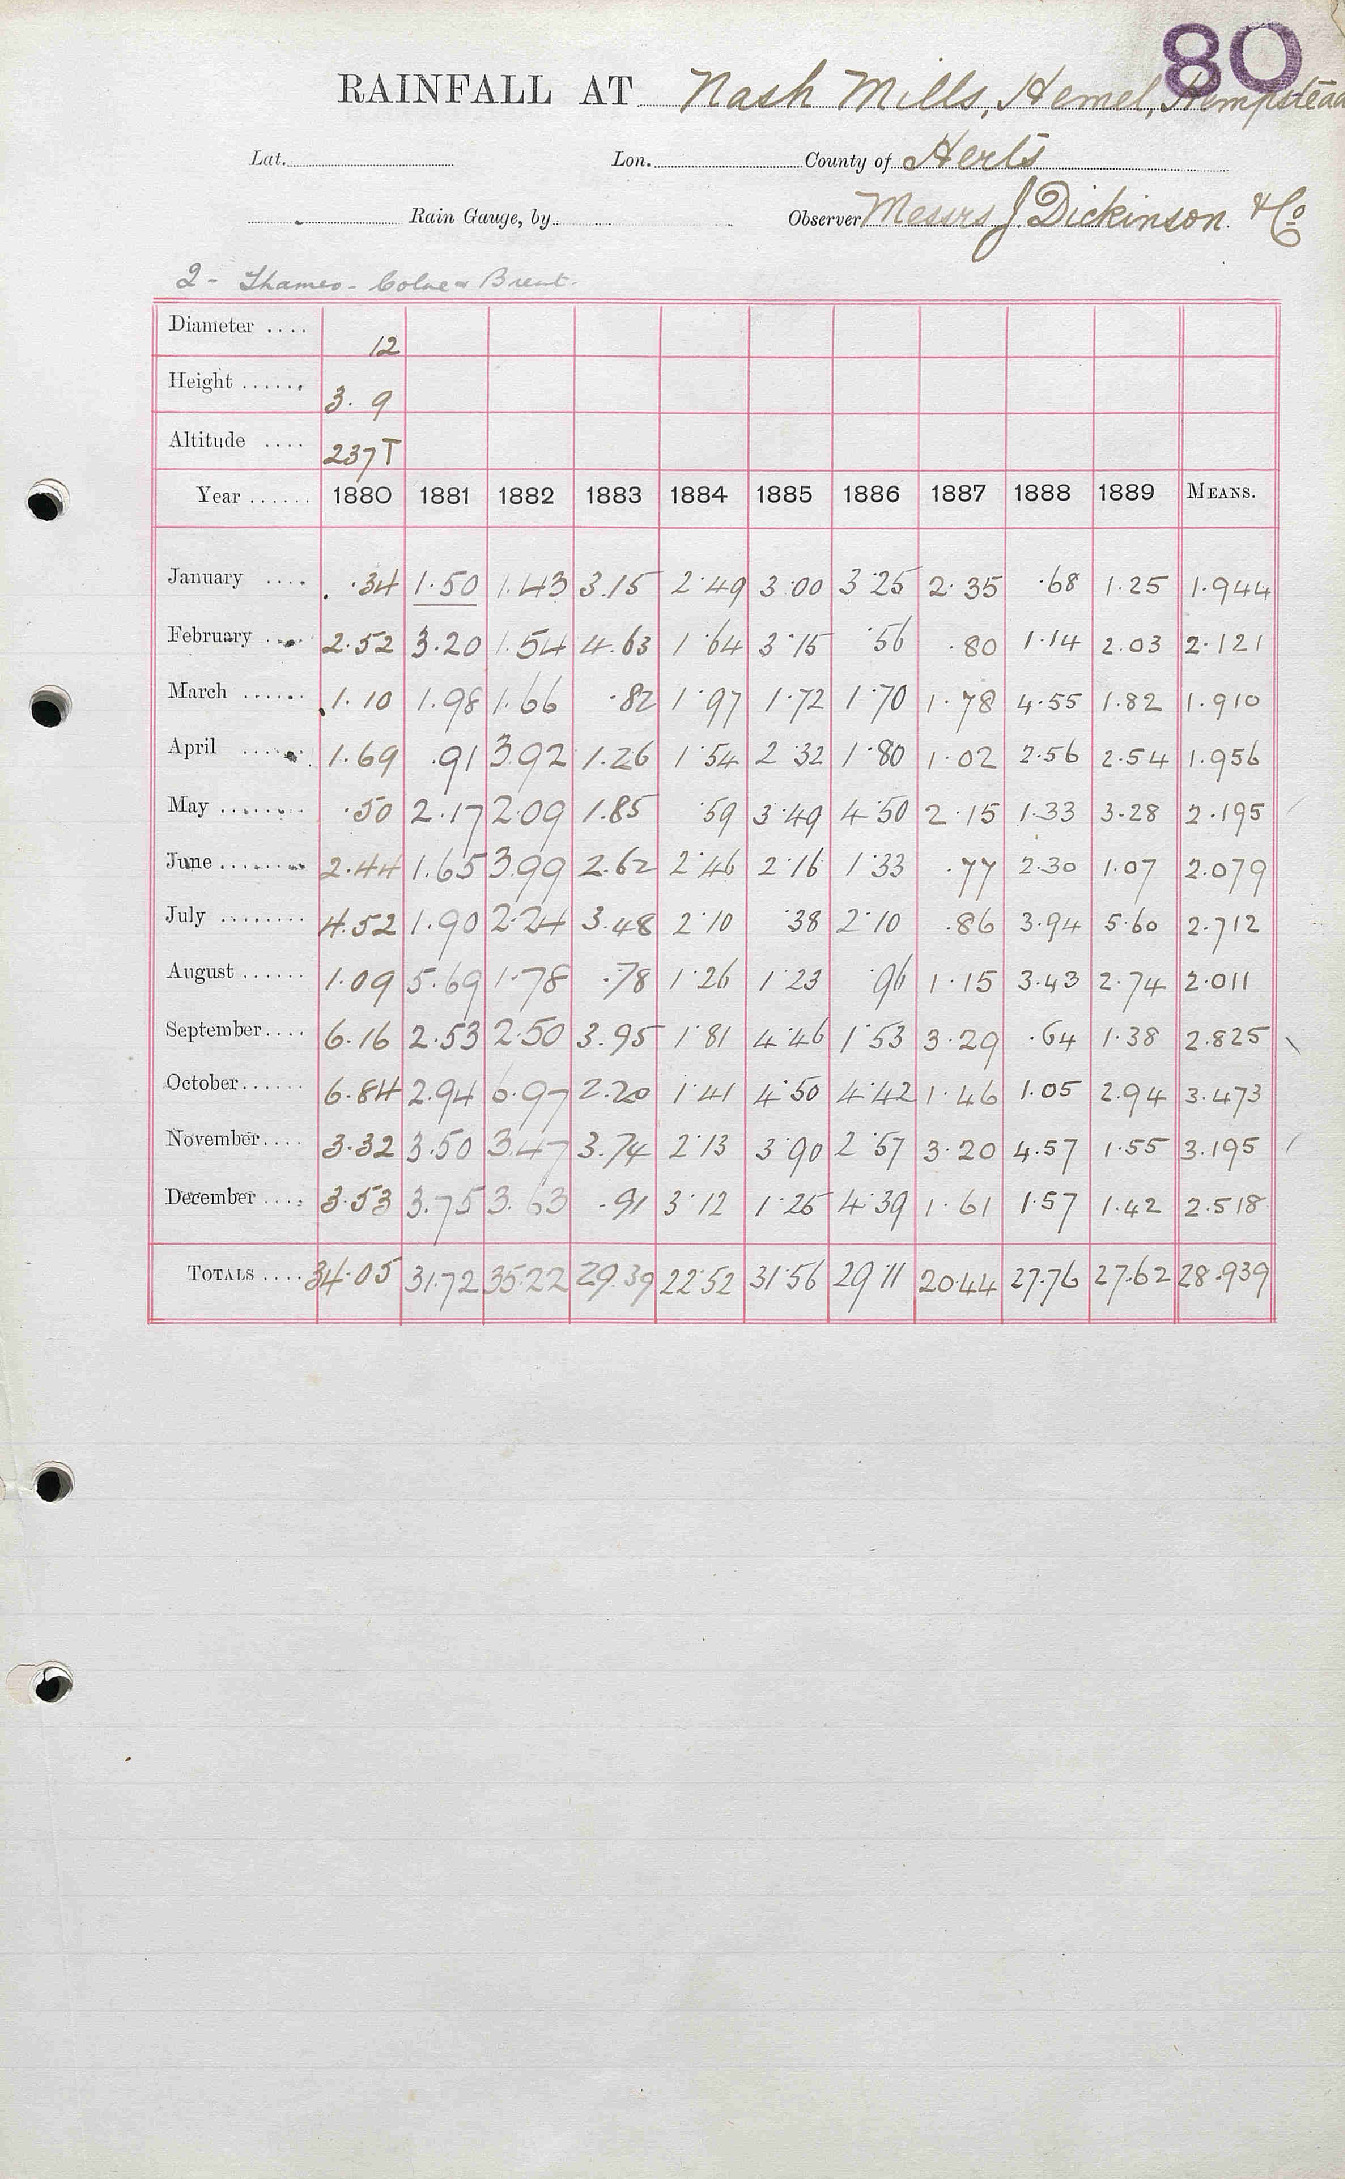 80
RAINFALL AT Nash Mills, Hemel, Hempstead
Lat. Lon. County of Herts
Rain Gauge, by Observer Messrs J. Dickinson & Co
2 - Thames - Colne & Brent.
Diameter .... 12
Height ...... 3. 9
Altitude .... 237 T
Year ...... 1880 1881 1882 1883 1884 1885 1886 1887 1888 1889 MEANS.
January .... .34 1.50 1.43 3.15 2.49 3.00 3.25 2.35 .68 1.25 1.944
February .... 2.52 3.20 1.54 4.63 1.64 3.15 .56 .80 1.14 2.03 2.121
March ...... 1.10 1.98 1.66 .82 1.97 1.72 1.70 1.78 4.55 1.82 1.910
April ...... 1.69 .91 3.92 1.26 1.54 2.32 1.80 1.02 2.56 2.54 1.956
May ........ .50 2.17 2.09 1.85 .59 3.49 4.50 2.15 1.33 3.28 2.195
June ........ 2.44 1.65 3.99 2.62 2.46 2.16 1.33 .77 2.30 1.07 2.079
July ........ 4.52 1.90 2.24 3.48 2.10 .38 2.10 .86 3.94 5.60 2.712
August ...... 1.09 5.69 1.78 .78 1.26 1.23 .96 1.15 3.43 2.74 2.011
September.... 6.16 2.53 2.50 3.95 1.81 4.46 1.53 3.29 .64 1.38 2.825
October...... 6.84 2.94 6.97 2.20 1.41 4.50 4.42 1.46 1.05 2.94 3.473
November.... 3.32 3.50 3.47 3.74 2.13 3.90 2.57 3.20 4.57 1.55 3.195
December .... 3.53 3.75 3.63 .91 3.12 1.25 4.39 1.61 1.57 1.42 2.518
TOTALS .... 34.05 31.72 35.22 29.39 22.52 31.56 29.11 20.44 27.76 27.62 28.939